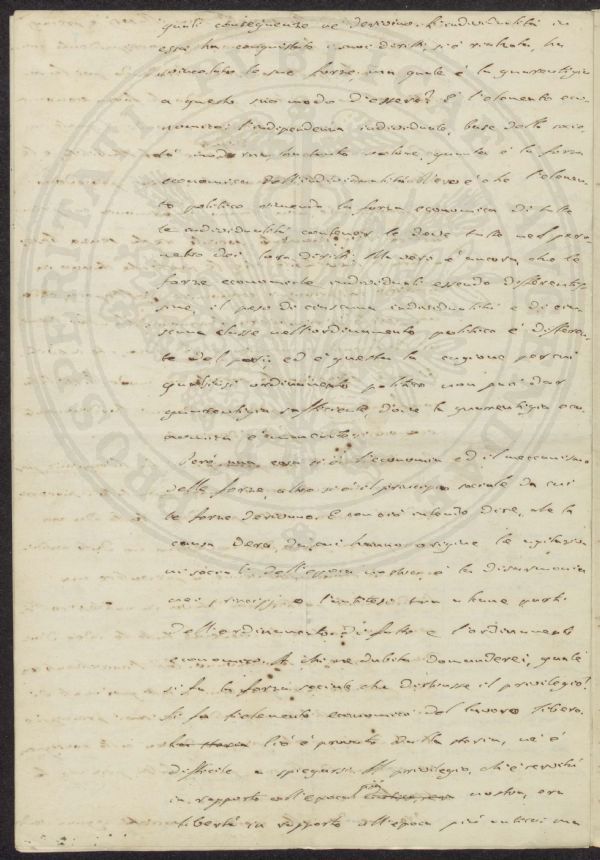 quali conseguenze ne derivino. L'individualità in
essa ha conquistato i suoi diritti, si è rialzata, ha
svincolato le sue forze, ma quale è la guarentigia
a questo suo modo d'essere? È l'elemento eco-
nomico: l'indipendenza individuale, base della socie-
tà moderna, tantanto vale quanta è la forza
economica dell'individualità. Vero è che l'elemen-
to politico armonizza la forza economica di tutte
le individualità le deve tutte nel pera-
metro dei loro diritti. Ma vero è ancora che le
forze economiche individuali essendo differentis-
sime, il peso di ciascuna individualità e di cia-
scuna classe nell'ordinamento politico è differen-
te del pari, ed è questa la cagione per cui
qualsiasi ordinamento politico non può dar
guarentigia sufficiente, dove la guarentigia eco-
nomica è mancante.
Però una cosa si è l'economia ed il meccanismo
delle forze, altro si è il principio sociale da cui
le forze derivano. E con ciò intendo dire, che la
causa vera, da cui hanno origine le agitazio-
ni sociali dell'epoca nostra, è la disarmonia
nei principi o l'antitesi tra alcune parti
dell'ordinamento di fatto e l'ordinamento
economico. A chi ne dubita domanderei, quale
si fu la forza sociale che distrusse il privilegio?
Si fu l'elemento economico del lavoro libero.
Ciò è provato dalla storia, nè è
difficile a spiegarsi. Il privilegio, ch'è servitù
in rapporto all'epoca più nostra, era
libertà in rapporto all'epoca più antica ma